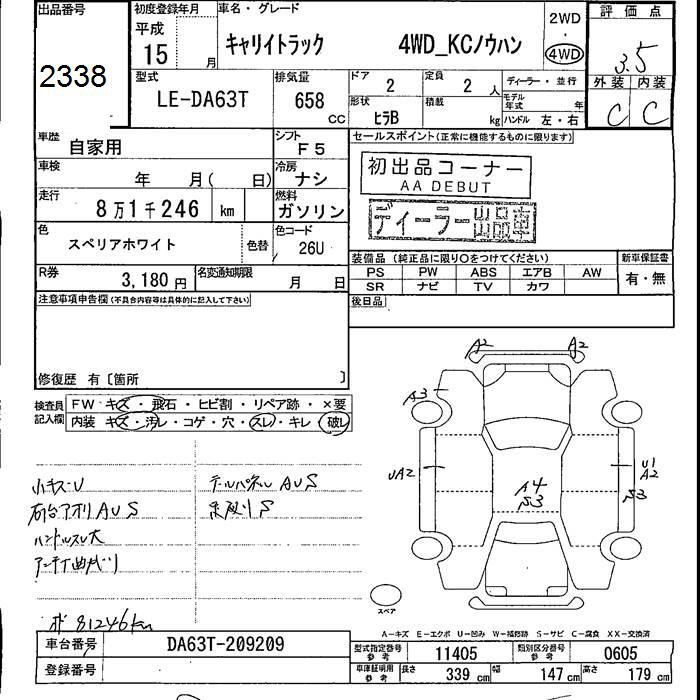 出品番号 初度登録年月 車名・グレード 2WD・4WD 評価点
2338 平成 15 月 キャリイトラック 4WD_KCノウハン 3.5
型式 LE-DA63T 排気量 658 CC ドア 2 定員 2 人 ディーラー・並行 外装 内装
形状 ヒラB 積載 kg モデル年式 年 ハンドル 左・右 C C
車歴 自家用 シフト F5 セールスポイント(正常に機能するものに限ります)
車検 年 月( 日) 冷房 ナシ 初出品コーナー
AA DEBUT
走行 8万1千246 km 燃料 ガソリン ディーラー出品車
色 スペリアホワイト 色替 色コード 26U
装備品(純正品に限り〇をつけてください) 新車保証書
R券 3,180円 名変通知期限 月 日 PS PW ABS エアB AW 有・無
SR ナビ TV カワ
注意事項申告欄(不具合内容等は具体的に記入して下さい) 後日品
修復歴 有〔箇所 〕
検査員記入欄 FW キズ・飛石・ヒビ割・リペア跡・×要
内装 キズ・汚レ・コゲ・穴・スレ・キレ・破レ
A2 A2
A3
UA2 U1
A2
A4 S3
S3
小キズU テールパネルAUS
荷台アオリAUS
ハンドルスレ大
アンテナ曲ガリ
スペア
ボ 81246km
A-キズ E-エクボ U-凹み W-補修跡 S-サビ C-腐食 XX-交換済
車台番号 DA63T-209209 型式指定番号 参考 11405 類別区分番号 参考 0605
登録番号 車庫証明用 参考 長さ 339 cm 幅 147 cm 高さ 179 cm